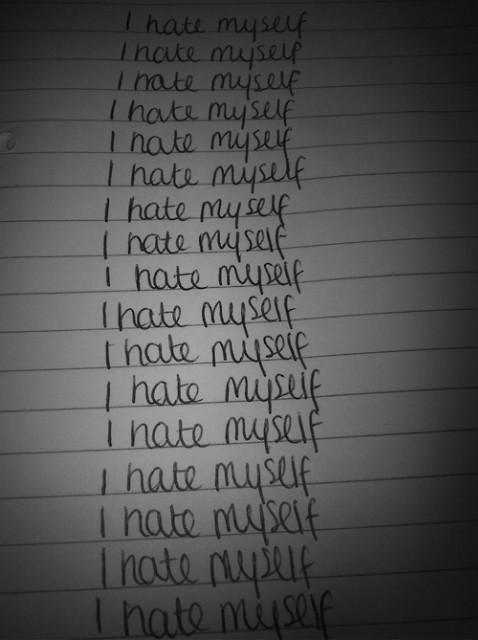 I hate myself
I hate myself
I hate myself
I hate myself
I hate myself
I hate myself
I hate myself
I hate myself
I hate myself
I hate myself
I hate myself
I hate myself
I hate myself
I hate myself
I hate myself
I hate myself
I hate myself